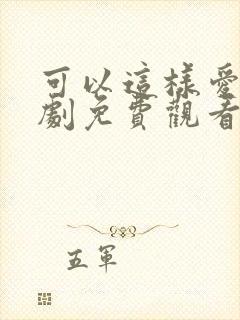 可以這樣愛
劇免費觀看
五軍